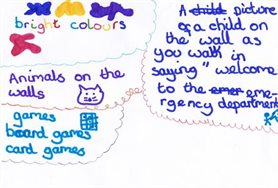 bright colours
Animals on the
walls
games
board games
card games
A child picture
of a child on
the wall as
you walk in
saying " welcome
to the emer eme-
rgency department